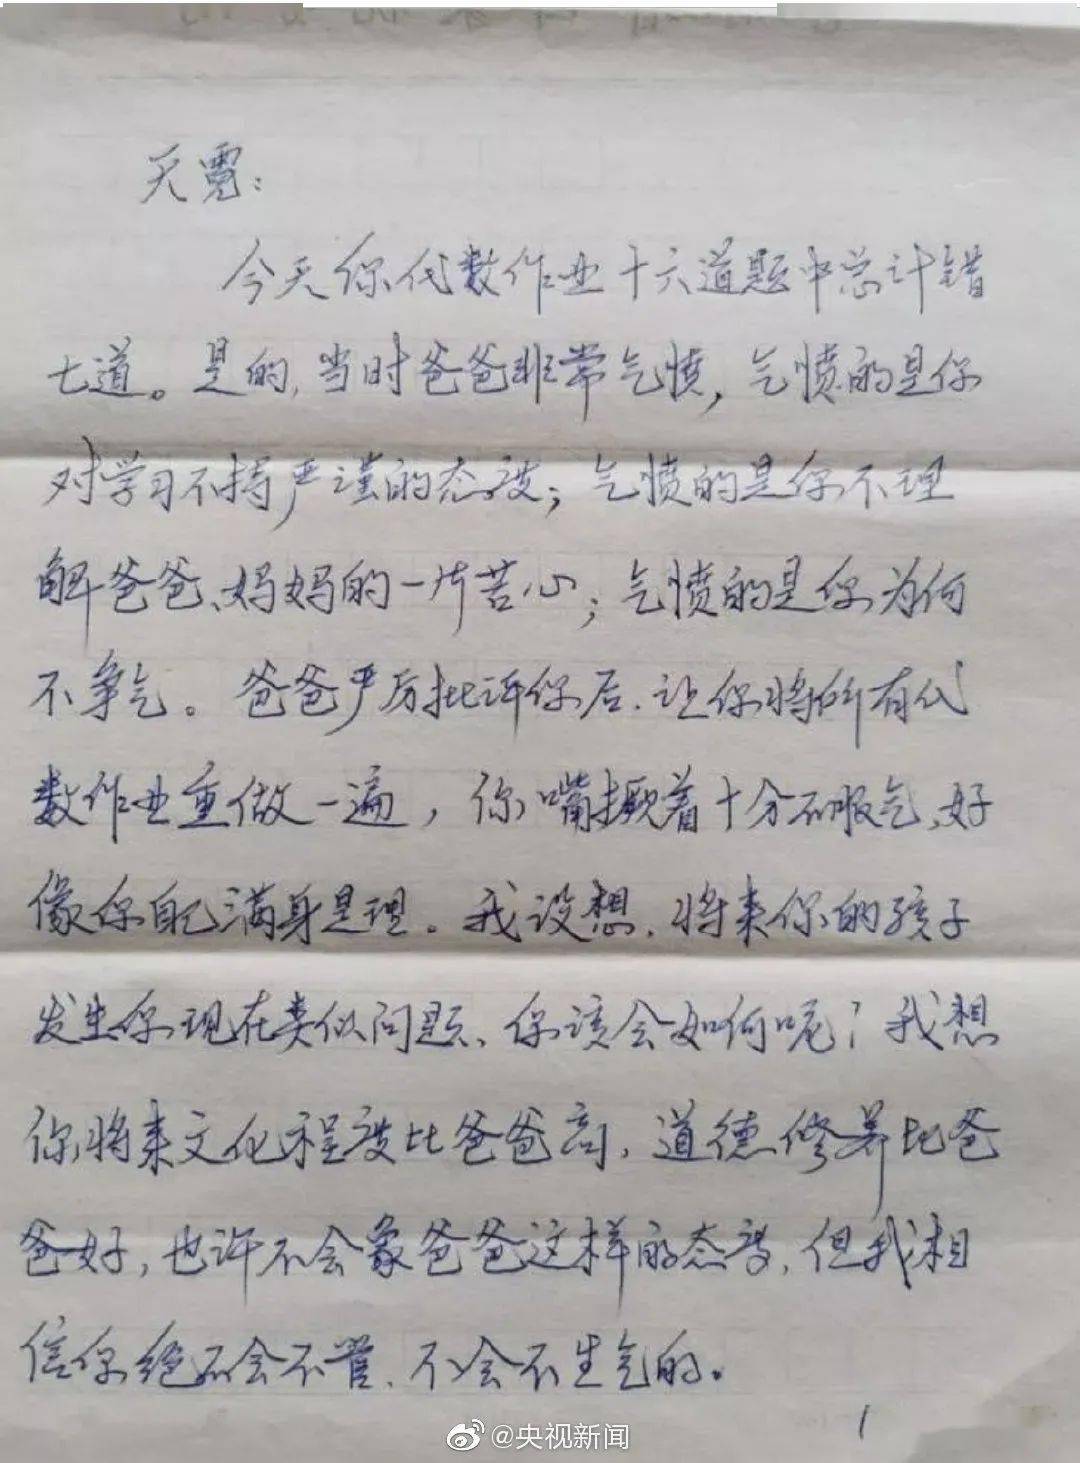 天霓：
今天你代数作业十六道题中总计错
七道。是的，当时爸爸非常气愤，气愤的是你
对学习不持严谨的态度；气愤的是你不理
解爸爸、妈妈的一片苦心；气愤的是你为何
不争气。爸爸严厉批评你后，让你将所有代
数作业重做一遍，你嘴撅着十分不服气，好
像你自己满身是理。我设想，将来你的孩子
发生你现在类似问题，你该会如何呢？我想
你将来文化程度比爸爸高，道德修养比爸
爸好，也许不会象爸爸这样的态度，但我相
信你绝不会不管，不会不生气的。
1
@央视新闻